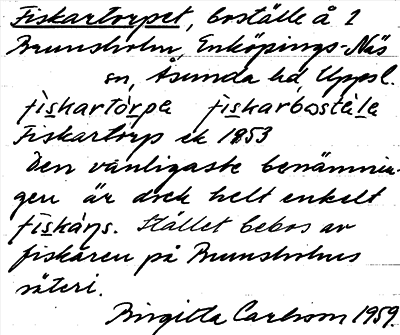 Fiskartorpet, boställe å 1
Brunsholm, Enköpings-Näs
sn, Åsunda hd, Uppsl.
fiskartòrpe fiskarbostèle
Fiskartorp ek 1853
Den vanligaste benämnin-
gen är dock helt enkelt
fiskàṇs. Stället bebos av
fiskaren på Brunsholms
säteri.
Birgitta Carlsson 1959.